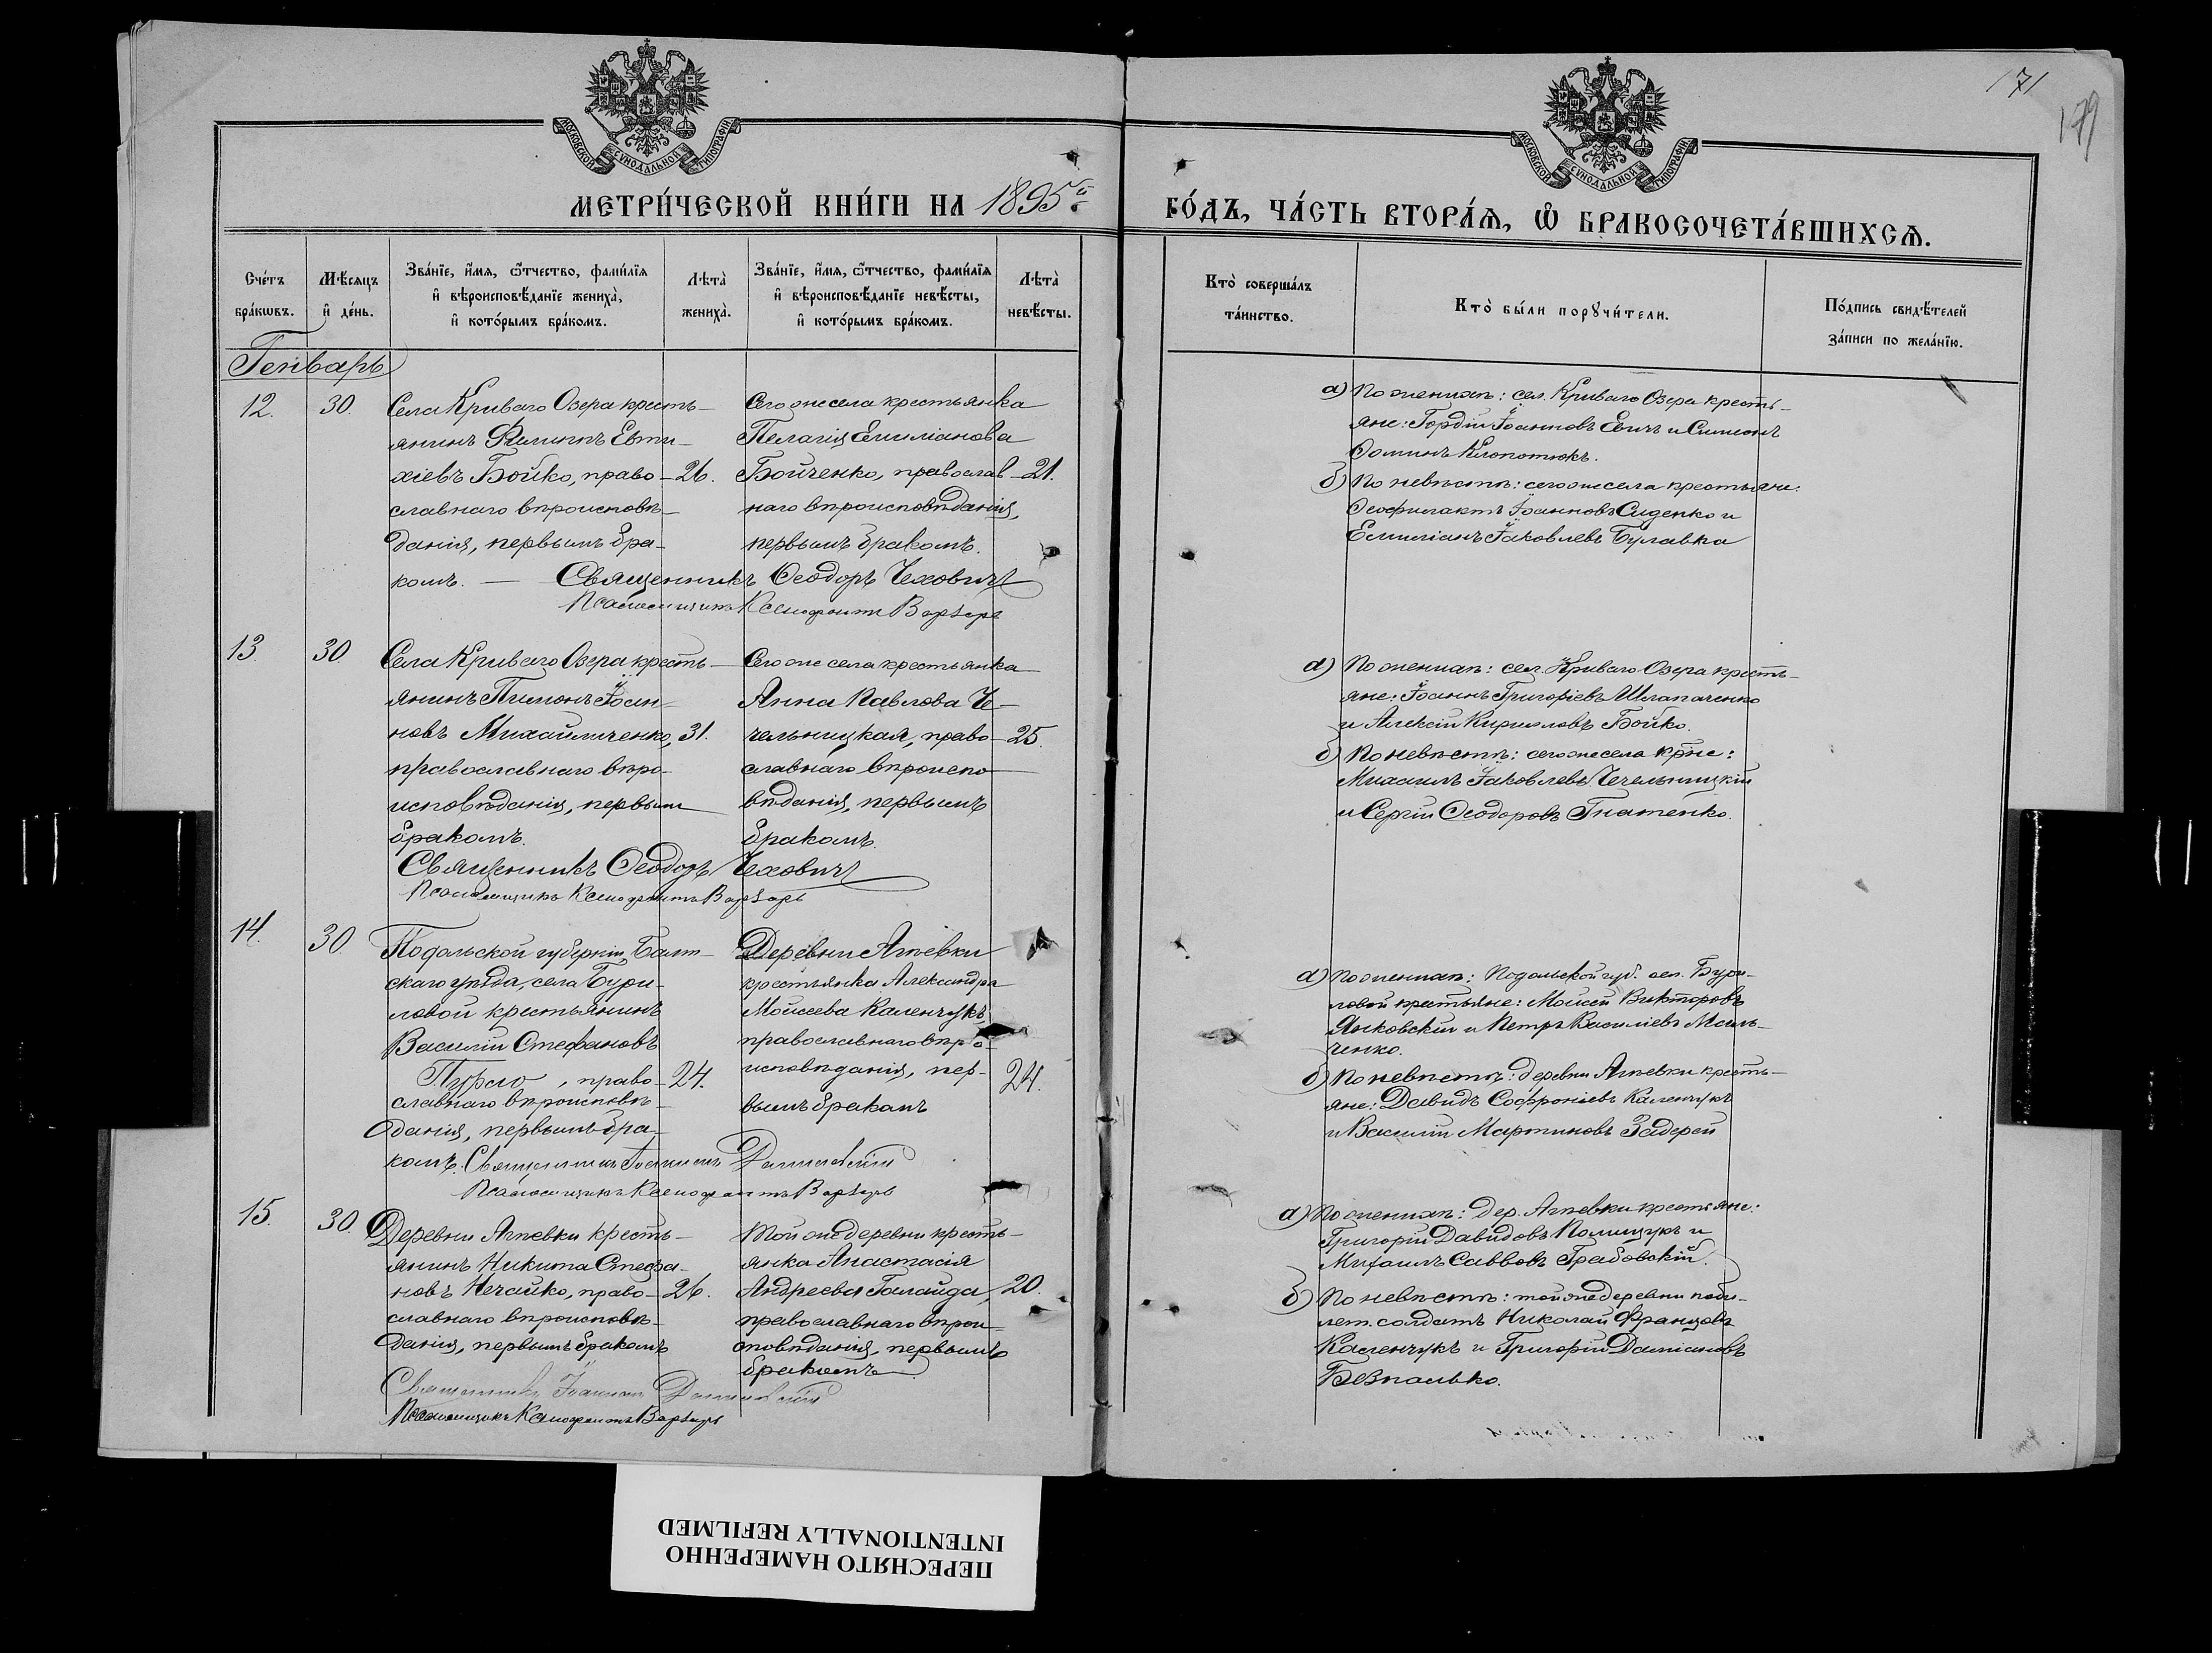 171
179
МОСКОВСКОЙ СѴНОДАЛЬНОЙ ТИПОГРАФІИ
МОСКОВСКОЙ СѴНОДАЛЬНОЙ ТИПОГРАФІИ
МЕТРИ́ЧЕСКОЙ КНИ́ГИ НА 1895й
ГО́ДЪ, ЧА́СТЬ ВТОРА́Ѧ, Ѽ БРАКОСОЧЕТА́ВШИХСѦ.
Сче́тъ бра́кѡвъ.
Мѣ́сяцъ и҆ де́нь.
Зва́нїе, и҆́мѧ, ѻ҆́тчество, фамилїѧ и҆ вѣроисповѣ́данїе жениха̀, и҆ кото́рымъ бра́комъ.
Лѣта̀ жениха̀.
Зва́нїе, и҆́мѧ, ѻ҆́тчество, фамилїѧ и҆ вѣроисповѣ́данїе невѣ́сты, и҆ кото́рымъ бра́комъ.
Лѣта̀ невѣ́сты.
Кто̀ соверша́лъ та́инство.
Кто̀ бы́ли порꙋчи́тели.
По́дпись свидѣ́телей за́писи по жела́нїю.
Генварь
12.
30.
Села Криваго Озера кресть-
янинъ Филиппъ Евти-
хіевъ Бойко, право-
славнаго вѣроисповѣ-
данія, первымъ бра-
комъ. —
26.
Сего же села крестьянка
Пелагія Емиліанова
Бойченко, православ-
наго вѣроисповѣданія,
первымъ бракомъ.
21.
Священникъ Ѳеодоръ Чеховичъ
Псаломщикъ Ксенофонтъ
а) По женихѣ: сел. Криваго Озера кресть-
яне: Гордій Іоанновъ и Симеонъ
Ѳоминъ Клопотюкъ.
б) По невѣстѣ: сего же села крестьяне:
Ѳеофилактъ Іоанновъ Сиденко и
Емиліанъ Іаковлевъ Булавка
13.
30.
Села Криваго Озера кресть-
янинъ Пименъ Іоан-
новъ Михайличенко,
православнаго вѣро-
исповѣданія, первымъ
бракомъ.
31.
Сего же села крестьянка
Анна Павлова Че-
чельницкая, право-
славнаго вѣроиспо-
вѣданія, первымъ
бракомъ.
25.
Священникъ Ѳеодоръ Чеховичъ
Псаломщикъ Ксенофонтъ
а) По женихѣ: сел. Криваго Озера кресть-
яне: Іоаннъ Григоріевъ Шлапаченко
и Алексій Кирилловъ Бойко.
б) По невѣстѣ: сего же села кр̃не:
Михаилъ Іаковлевъ Чечельницкій
и Сергій Ѳеодоровъ Гнатенко.
14.
30.
Подольской губерніи, Балт-
скаго уѣзда, села Бури-
ловой крестьянинъ
Василій Стефановъ
, право-
славнаго вѣроисповѣ-
данія, первымъ бра-
комъ.
24.
Деревни Агѣевки
крестьянка Александра
Моисеева Каленчукъ,
православнаго вѣро-
исповѣданія, пер-
вымъ бракомъ
24.
Священникъ
Псаломщикъ Ксенофонтъ
а) По женихѣ: Подольской губ. сел. Бури-
ловой крестьяне: Моисей Викторовъ
Янковскій и Петръ Василіевъ
ченко.
б) По невѣстѣ: деревни Агѣевки кресть-
яне: Давидъ Софроніевъ Каленчукъ
и Василій Мартиновъ Задерей
15.
30.
Деревни Агѣевки кресть-
янинъ Никита Стефа-
новъ Нечайко, право-
славнаго вѣроисповѣ-
данія, первымъ бракомъ
26.
Той же деревни кресть-
янка Анастасія
Андреева Галайда,
православнаго вѣрои-
сповѣданія, первымъ
бракомъ
20.
Священникъ
Псаломщикъ Ксенофонтъ
а) По женихѣ: дер. Агѣевки крестьяне:
Григорій Давидовъ Полищукъ и
Михаилъ Савввовъ Грабовскій.
б) По невѣстѣ: той же деревни
солдатъ Николай Францовъ
Каленчукъ и Григорій Даміановъ
Безпалько.
ПЕРЕСНЯТО НАМЕРЕННО
INTENTIONALLY REFILMED